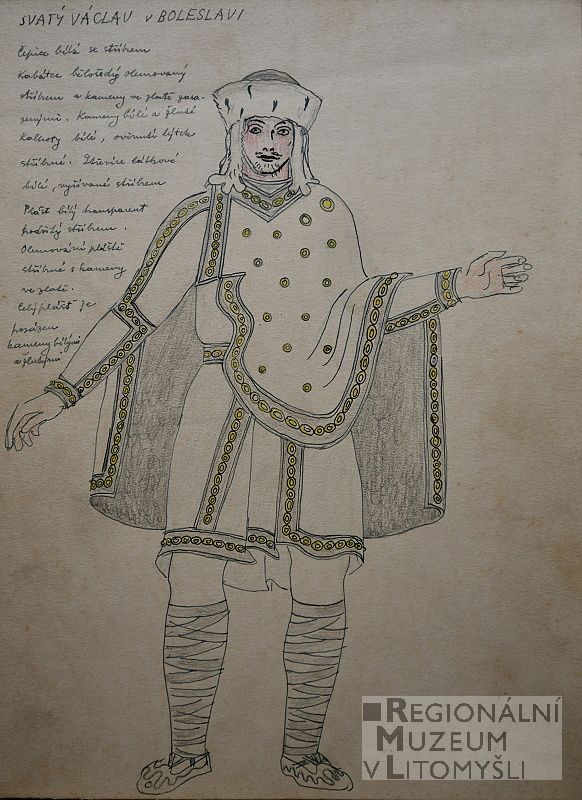 SVATÝ VÁCLAV V BOLESLAVI
Čepice bílá se stříbrem
Kabátec bělošedý olemovaný
stříbrem a kameny ve zlatě zasa-
zenými. Kameny bílé a žluté
Kalhoty bílé, ovinutí lýtek
stříbrné. Střevíce látkové
bílé, vyšívané stříbrem
Plášť bílý transparent
podšitý stříbrem.
Olemování pláště
stříbrné s kameny
ve zlatě.
Celý plášť je
posázen
kameny bílými
a žlutými
REGIONÁLNÍ
MUZEUM
V LITOMYŠLI